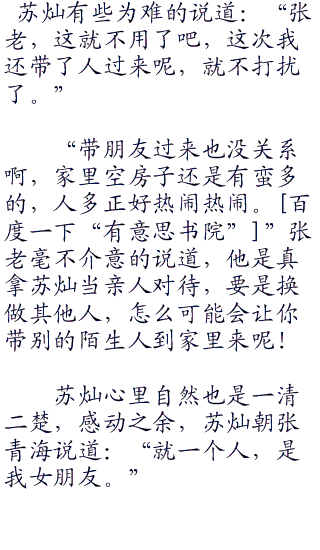 苏灿有些为难的说道：“张
老，这就不用了吧，这次我
还带了人过来呢，就不打扰
了。”
“带朋友过来也没关系
啊，家里空房子还是有蛮多
的，人多正好热闹热闹。[百
度一下“有意思书院”]”张
老毫不介意的说道，他是真
拿苏灿当亲人对待，要是换
做其他人，怎么可能会让你
带别的陌生人到家里来呢！
苏灿心里自然也是一清
二楚，感动之余，苏灿朝张
青海说道：“就一个人，是
我女朋友。”